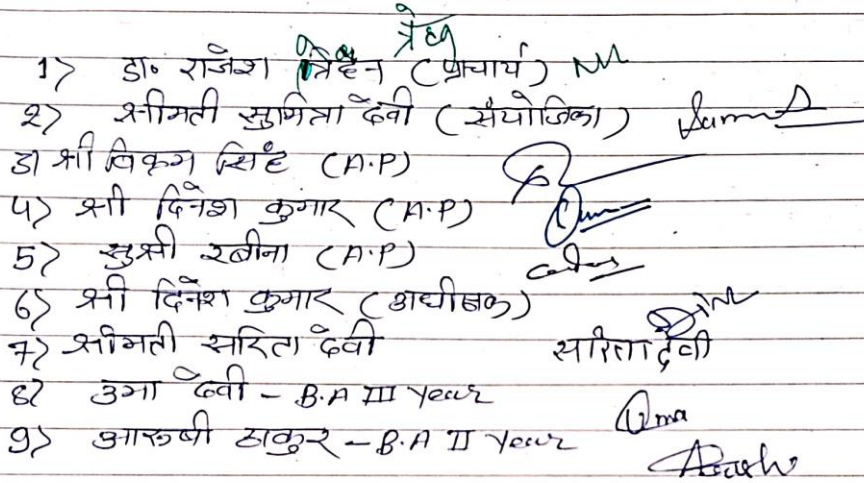 1) डा० राजेश (प्राचार्य)
2) श्रीमती सुमिता देवी (संयोजिका)
3) श्री विक्रम सिंह (A.P)
4) श्री दिनेश कुमार (A.P)
5) सुश्री रवीना (A.P)
6) श्री दिनेश कुमार (अधीक्षक)
7) श्रीमती सरिता देवी सरिता देवी
8) उमा देवी - B.A III Year Uma
9) आरूषी ठाकुर - B.A II Year